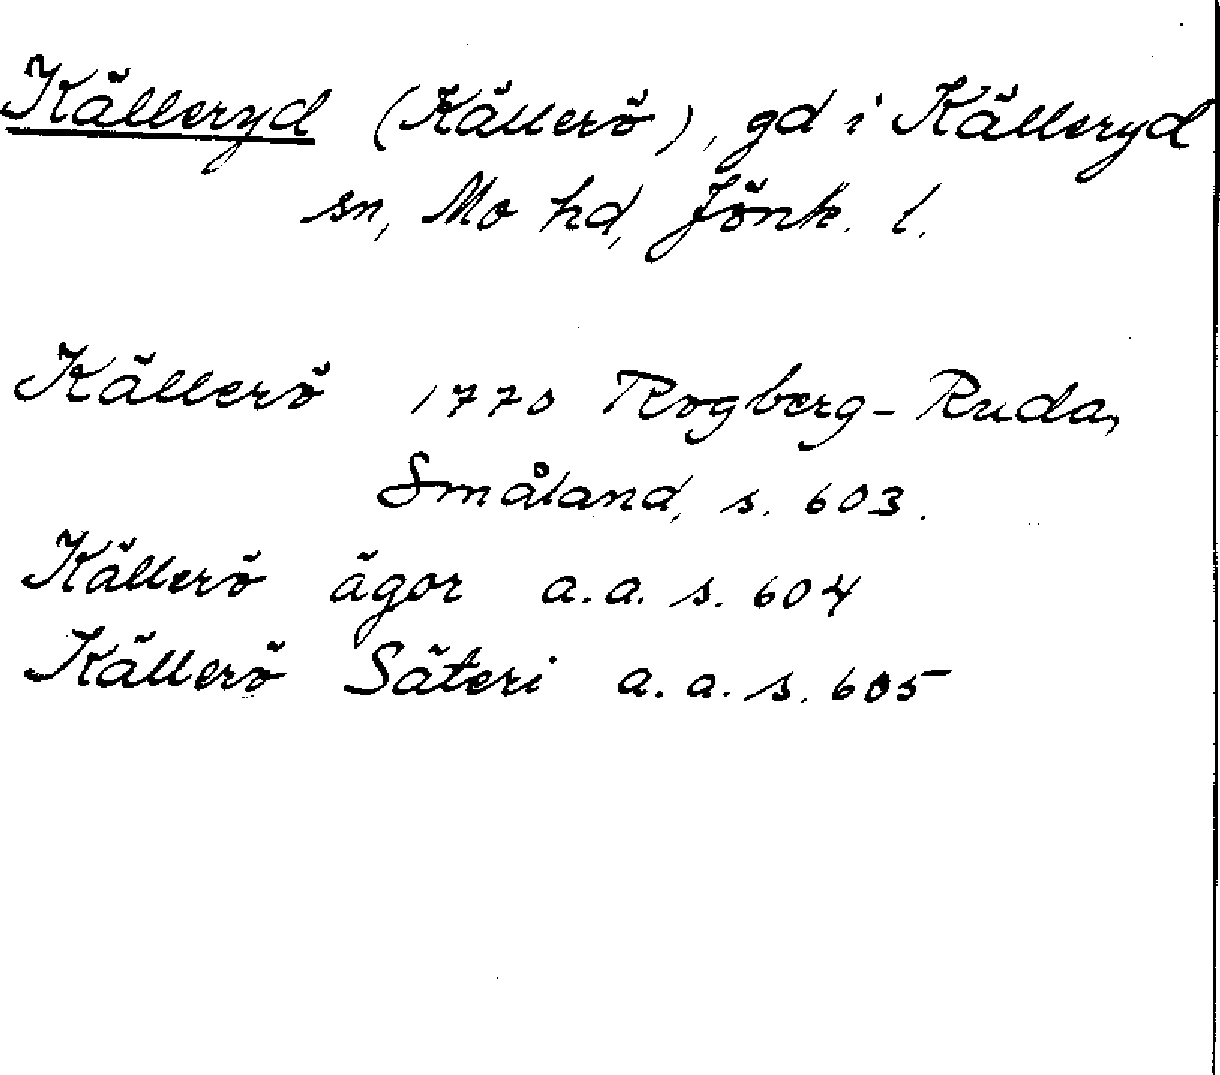 Källeryd (Källerö), gd i Källeryd
sn, Mo hd, Jönk. l.
Källerö 1770 Rogberg-Ruda,
Småland, s. 603.
Källerö ägor a.a. s. 604
Källerö Säteri a.a. s. 605